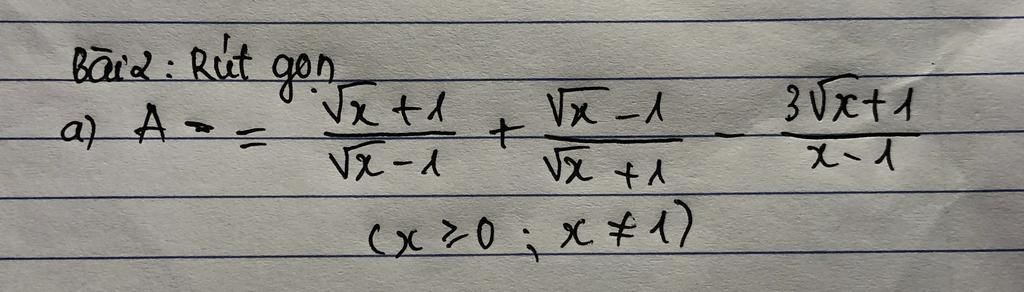 Bài 2: Rút gọn
a) A = \frac{\sqrt{x}+1}{\sqrt{x}-1} + \frac{\sqrt{x}-1}{\sqrt{x}+1} - \frac{3\sqrt{x}+1}{x-1}
(x ≥ 0 ; x ≠ 1)